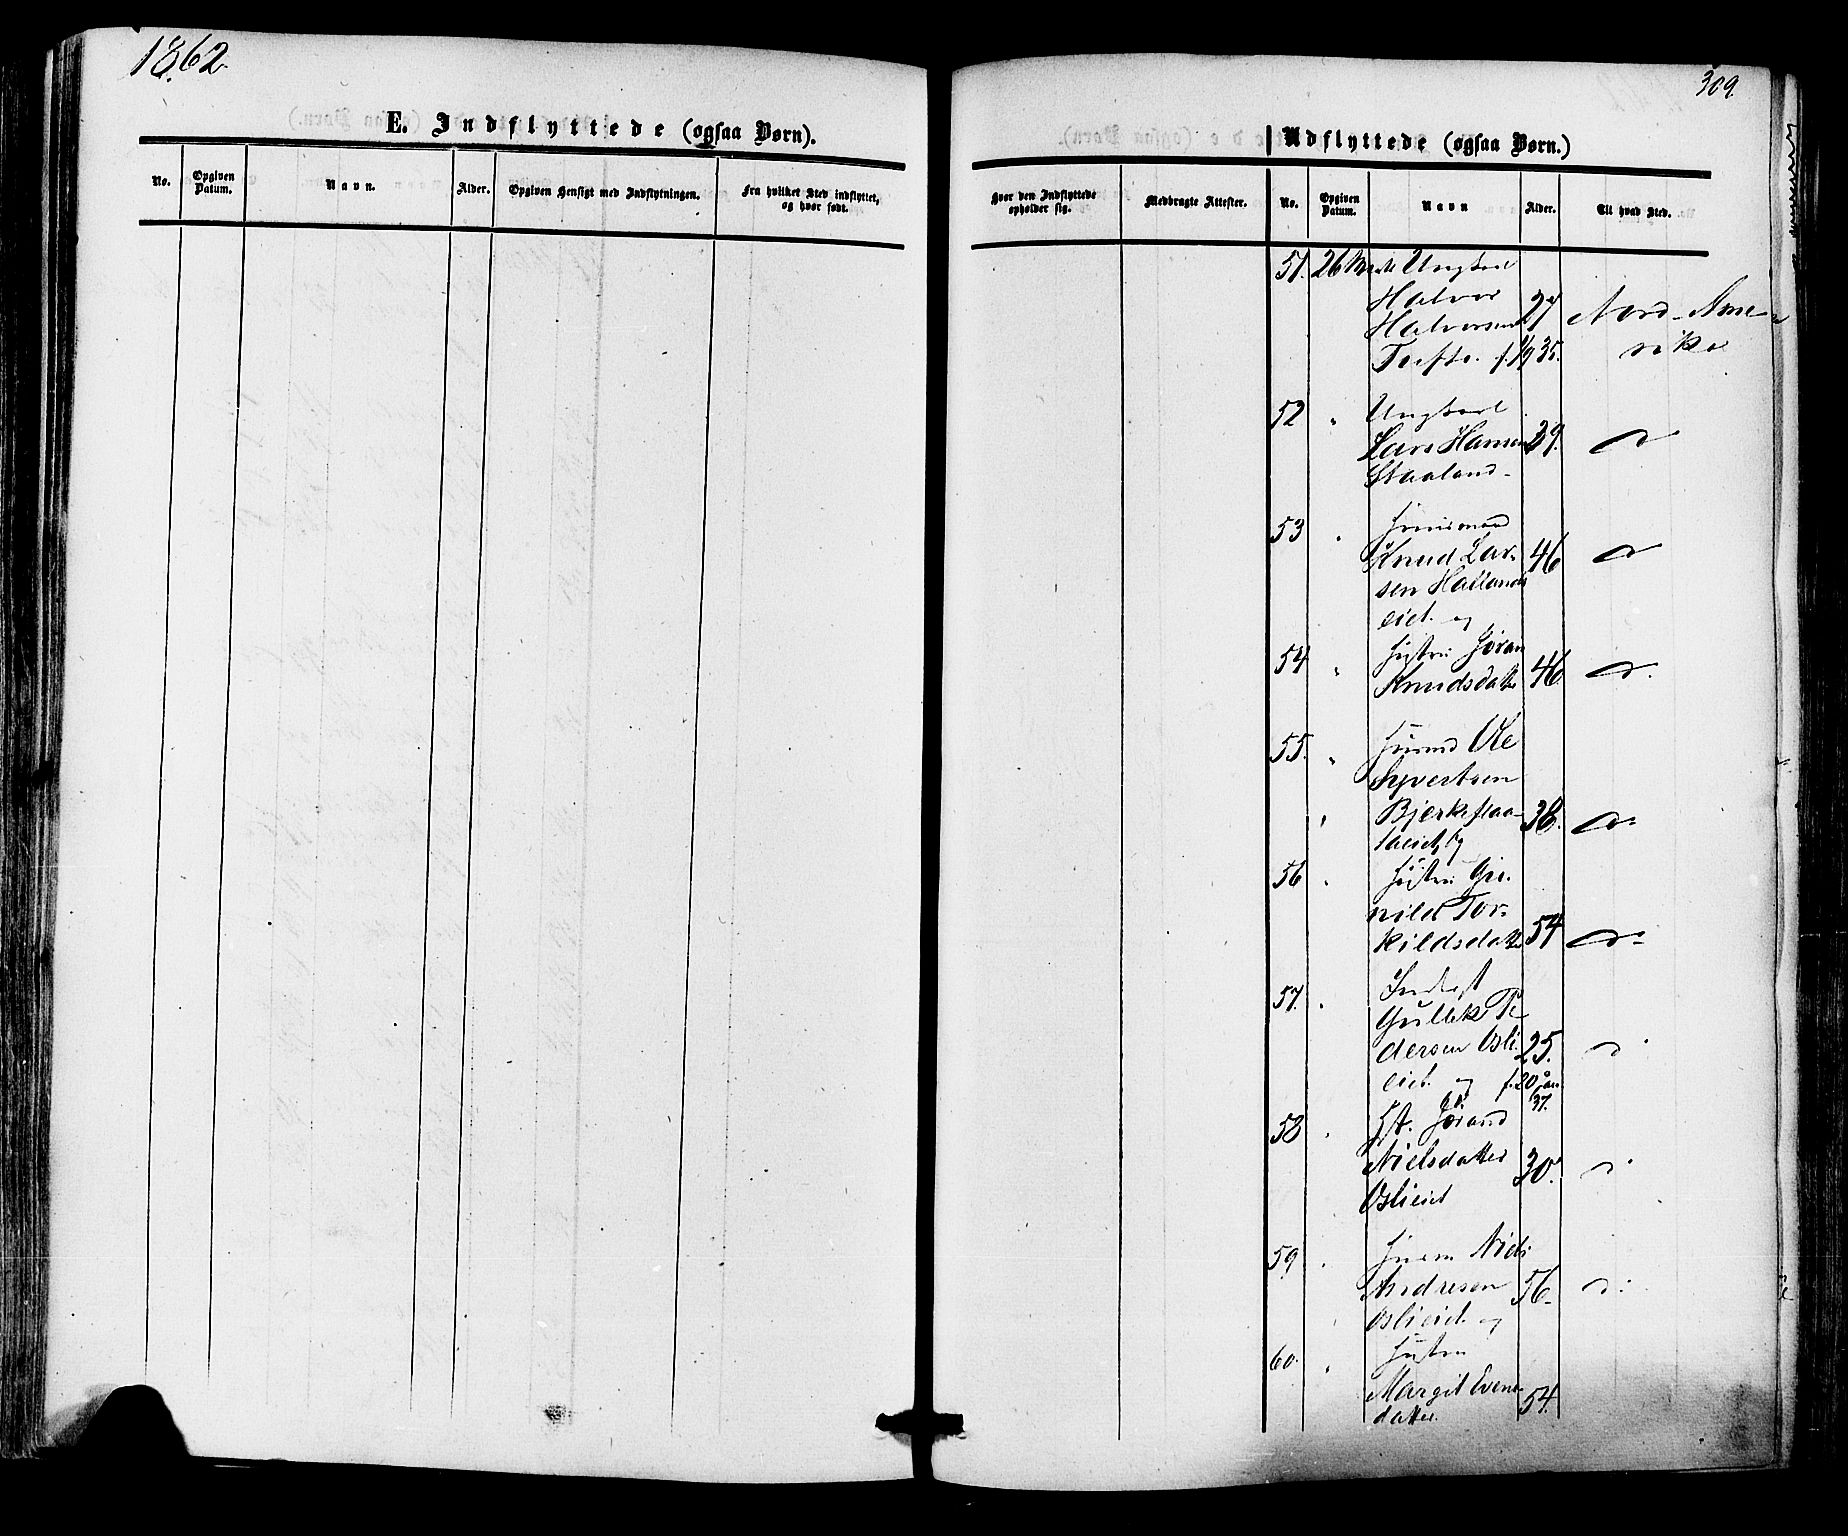 1862
E. Indflyttede (ogsaa Børn).
No.
Opgiven Datum.
Navn.
Alder.
Opgiven Hensigt med Indflytningen.
Fra hvilket Sted indflyttet, og hvor født.
309.
Udflyttede (ogsaa Børn.)
Hvor den Indflyttede opholder sig.
Medbragte Attester.
No.
Opgiven Datum.
Navn
Alder.
Til hvad Sted.
51. 26 Ungkarl
Halvor
Halvorsen 27 Nord-Ame-
Tofte. f. 35. rika
52 " Ungkarl
Lars Hansen 39. do
Staaland
53 " Huusmand
Knud Lar- 46 do
sen Hallands
eiet. og
54 " Hustru Jøran
Knudsdatter 46 do.
55. " Huusmd Ole
Syvertsen
" Bjerkeflaa- 38. do
taeiet, og
56 " Hustru Gu-
nild Tor-
kildsdatter 54 do
57. " Inderst
Gullek Pe-
dersen Osli 25. do
eiet. og f. 20
37.
58 " Hst. Jørand
Nielsdatter 30. do
Oslieiet
59 " Huusm Niels
Andresen 56. do
Oslieiet. og
60. " Hustru
Margit Evens-
datter. 54.